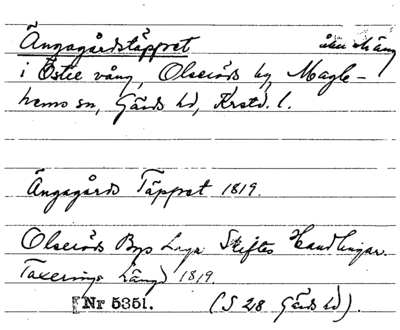 Ängagårdstäppet åker o. äng
i Östre vång, Olseröds by, Magle-
hems sn, Gärds hd, Krstd. l.
Ängagårds Täppet 1819.
Olseröds Bys Laga Skiftes Handlingar.
Taxerings Längd 1819.
Nr 5351. (S 28 Gärds hd).